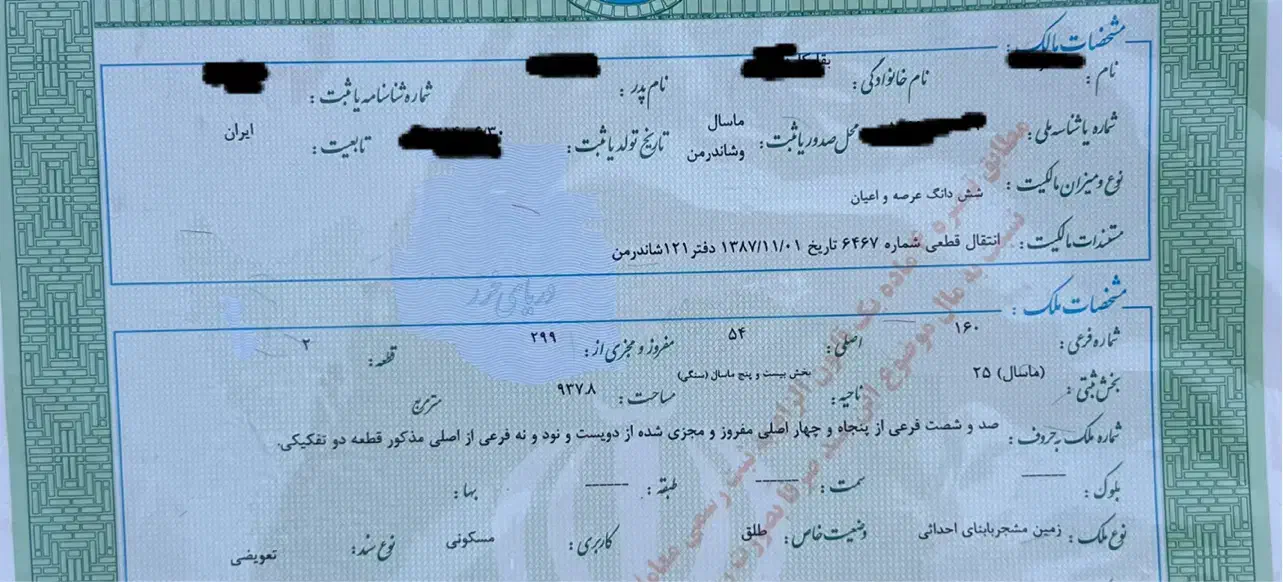 مشخصات مالک
نام : نام خانوادگی : نام پدر : شماره شناسنامه یا ثبت :
شماره یا شناسه ملی : محل صدور یا ثبت : ماسال وشاندرمن تاریخ تولد یا ثبت : تابعیت : ایران
نوع و میزان مالکیت : شش دانگ عرصه و اعیان
مستندات مالکیت : انتقال قطعی شماره ۶۴۶۷ تاریخ ۱۳۸۷/۱۱/۰۱ دفتر ۱۲۱شاندرمن
مشخصات ملک :
شماره فرعی : ۱۶۰ اصلی : ۵۴ مفروز و مجزی از : ۲۹۹ قطعه : ۲
بخش ثبتی : (ماسال) ۲۵ ناحیه : بخش بیست و پنج ماسال (سنگی) مساحت : ۹۳۷.۸ مترمربع
شماره ملک به حروف : صد و شصت فرعی از پنجاه و چهار اصلی مفروز و مجزی شده از دویست و نود و نه فرعی از اصلی مذکور قطعه دو تفکیکی.
بلوک : ------ سمت : ------ طبقه : ------ بها :
نوع ملک : زمین مشجربابنای احداثی وضعیت خاص : طلق کاربری : مسکونی نوع سند : تعویضی
دریای نور
مطابق تبصره ماده یک قانون الزام به ثبت رسمی
نسبت به مال موضوع این سند صرفا بصورت